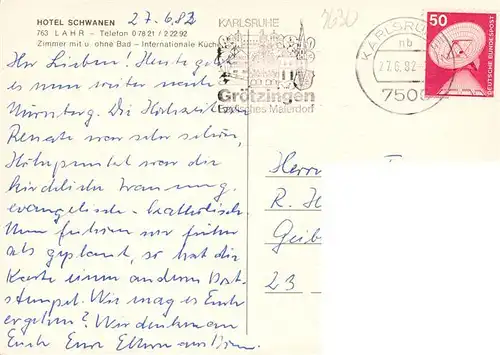 HOTEL SCHWANEN
27.6.82
763 LAHR – Telefon 0 78 21 / 2 22 92
Zimmer mit u. ohne Bad – Internationale Küche
7630
KARLSRUHE
Grötzingen
Badisches Malerdorf
KARLSRUHE
nb
27.6.82
7500
50
DEUTSCHE BUNDESPOST
Ihr Lieben, Heute geht
es nun weiter nach
Nürnberg. Die Hochzeit
Renate war sehr schön,
Höhepunkt war die
kirchliche Trauung,
evangelisch-katholisch.
Nun fuhren wir früher
als geplant, so hat die
Karte einen anderen Post-
stempel. Wie mag es Euch
ergehen? Wir denken an
Euch Eure Eltern aus
Herrn
R. H
Geib
23